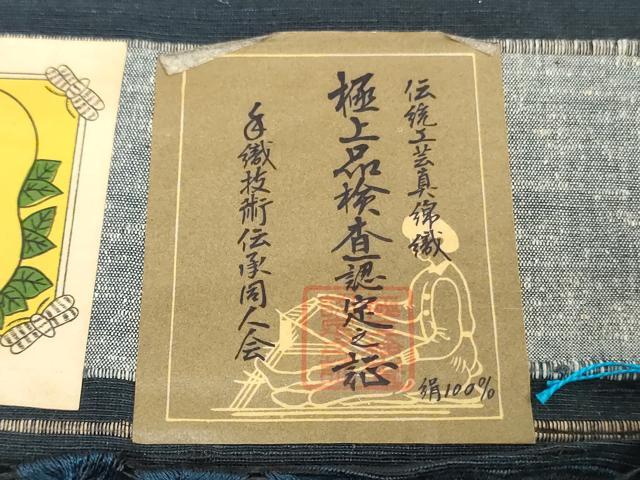 伝統工芸真綿織
極上品検査認定之証
手織技術伝承同人会
絹100%